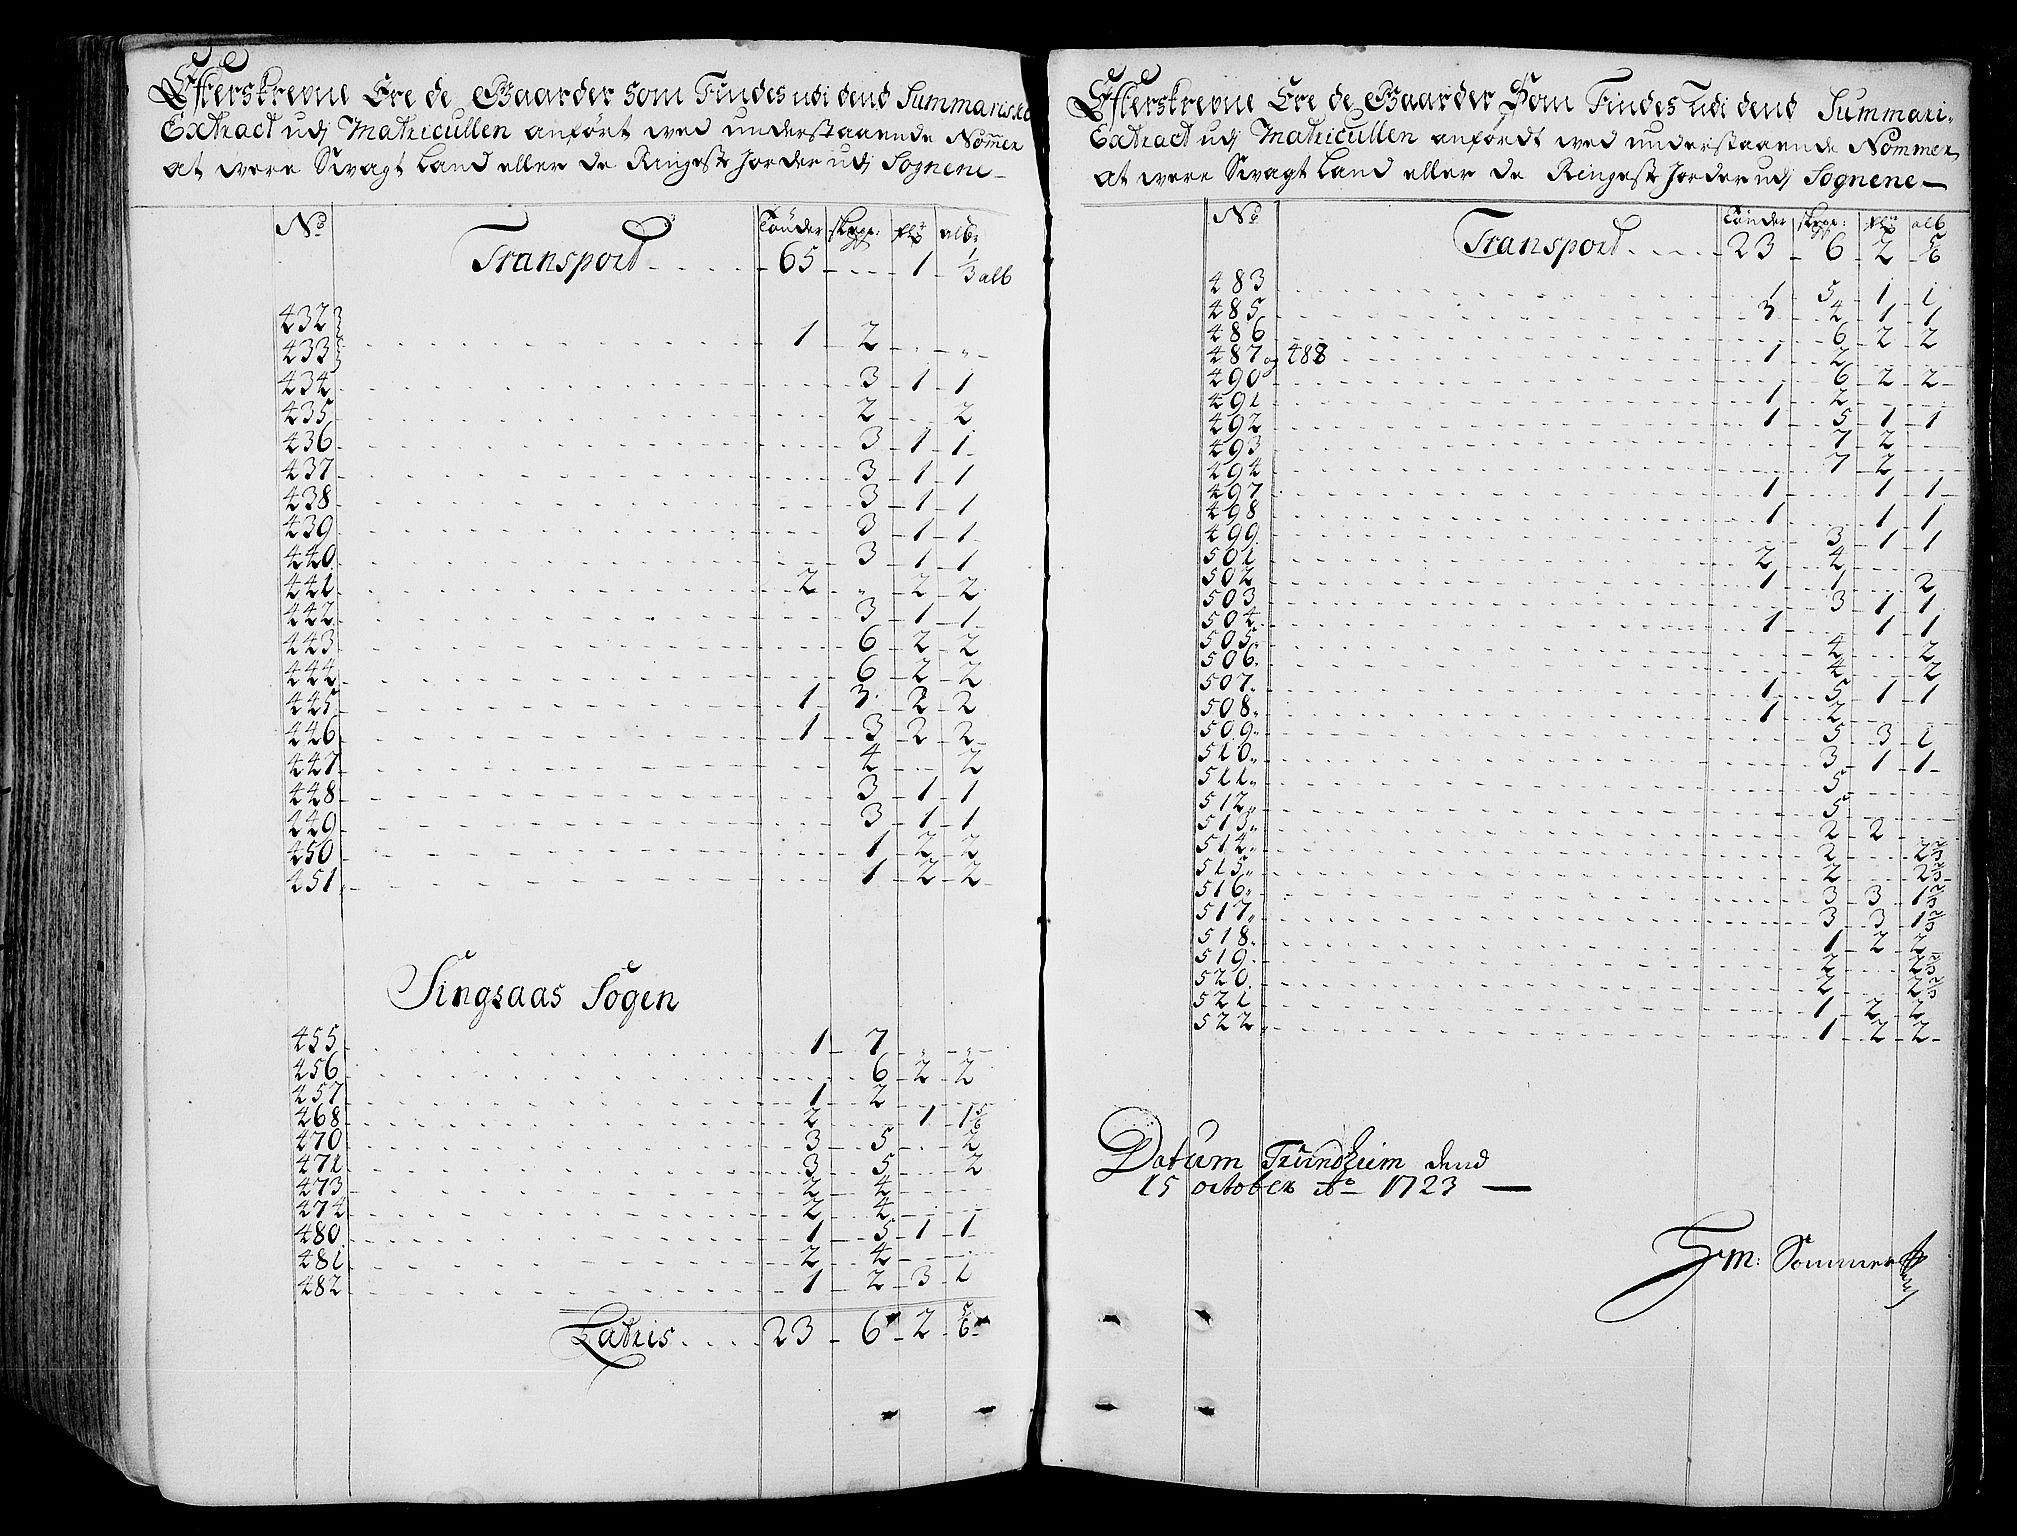 Efterskrevne Ere de Gaarder som Findes udi dend Summariske
Extract udj Matricullen anført ved understaaende Nommer
at were Svagt Land eller de Ringeste Jorder udj Sognene
No Tönder skpge: flø alb:
Transport 65 1 1/3 alb
432
433 1 2
434 3 1 1
435 2 2
436 3 1 1
437 3 1 1
438 3 1 1
439 3 1 1
440 3 1 1
441 2 2 2
442 3 1 1
443 6 2 2
444 6 2 2
445 1 3 2 2
446 1 3 2 2
447 4 2
448 3 1 1
449 3 1 1
450 1 2 2
451 1 2 2
Singsaas Sogen
455 1 7
456 6 2 2
457 1 2
468 2 1 1 5/6
470 3 5 2
471 3 5 2
473 2 4
474 2 4
480 1 5 1 1
481 2 4
482 1 2 3 1
Latris 23 6 2 5/6
Efterskrevne Ere de Gaarder Som Findes Udi dend Summari-
Extract udj Matricullen anfördt ved understaaende Nommer
at were Svagt Land eller de Ringeste Jorder udj Sognene
No Tönder skpge: flø alb
Transport 23 6 2 5/6
483 1 5 1 1
485 3 4 1 1
486 6 2 2
487 og 488 1 2
490 6 2 2
491 1 2
492 1 5 1 1
493 7 2
494 7 2
497 1 1 1
498 1 1 1
499 3 1 1
501 2 4
502 1 1 2
503 3 1 1
504 1 1 1
505 4 2
506 4 2
507 1 5 1 1
508 1 2
509 5 3 1
510 3 1 1
511 5
512 5
513 2 2
514 2 2 2/3
515 2 2 2/3
516 3 3 1 2/3
517 3 3 1 2/3
518 1 2 2
519 2 2 2/3
520 2 2 2/3
521 1 2 2
522 1 2 2
Datum Trundheim dend
15 october Ao 1723
Sommer